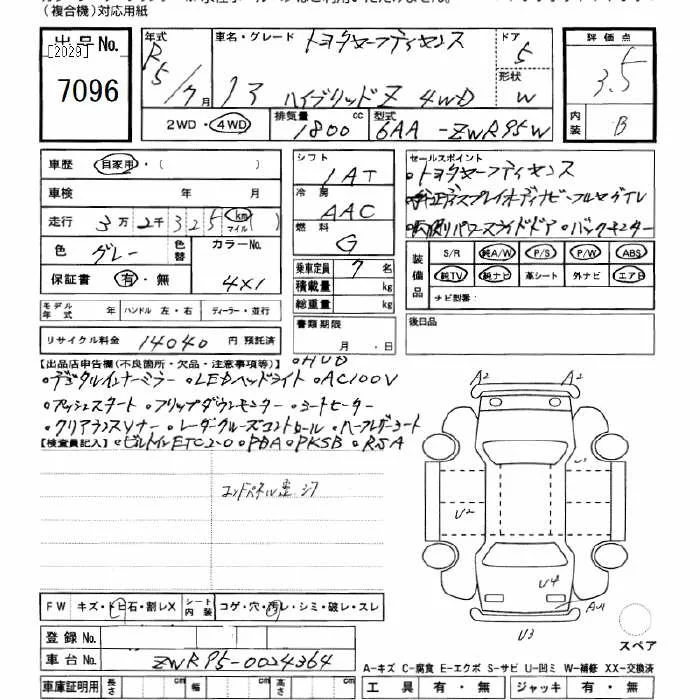 （複合機）対応用紙
出品No.
[2029]
7096
年式 車名・グレード トヨタセーフティセンス ドア 5
R5/7月 13 ハイブリッドZ 4WD 形状 W
2WD・4WD 排気量 1800 cc 型式 6AA-ZWR95W
評価点
3.5
内装 B
車歴 自家用・( )
車検 年 月
走行 3万2千325 km マイル ( )
色 グレー 色替 カラーNo. 4X1
保証書 有・無
モデル年式 年 ハンドル 左・右 ディーラー・並行
リサイクル料金 14040 円 預託済
シフト 1AT
冷房 AAC
燃料 G
乗車定員 7 名
積載量 kg
総重量 kg
書類期限 月 日
セールスポイント
・トヨタセーフティセンス
・純正ディスプレイオーディオナビ・フルセグTV
・両側パワースライドドア・バックモニター
装備品 S/R 純A/W P/S P/W ABS
純TV 純ナビ 革シート 外ナビ エアB
ナビ型番:
後日品
【出品店申告欄(不良箇所・欠品・注意事項等)】 ・HUD
・デジタルインナーミラー ・LEDヘッドライト ・AC100V
・プッシュスタート ・フリップダウンモニター ・シートヒーター
・クリアランスソナー ・レーダークルーズコントロール ・ハーフレザーシート
【検査員記入】 ・ビルトインETC2.0 ・PDA ・PKSB ・RSA
A2 A2
U2
U4
A4U1
U3
スペア
FW キズ・トビ石・割レX シート内装 コゲ・穴・汚レ・シミ・破レ・スレ
登録No.
車台No. ZWR95-0024364
車庫証明用 長さ cm 幅 cm 高さ cm
A-キズ C-腐食 E-エクボ S-サビ U-凹ミ W-補修 XX-交換済
工具 有・無 ジャッキ 有・無